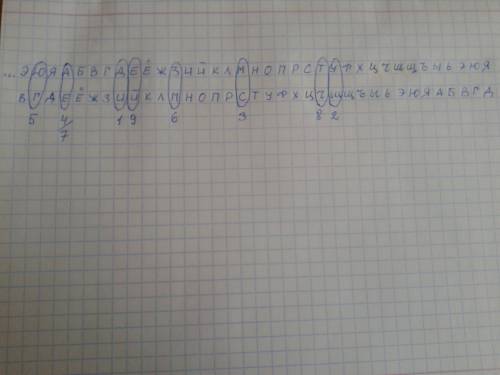 ... Э Ю Я А Б В Г Д Е Ё Ж З И Й К Л М Н О П Р С Т У Ф Х Ц Ч Ш Щ Ъ Ы Ь Э Ю Я
В Г Д Е Ё Ж З И Й К Л М Н О П Р С Т У Ф Х Ц Ч Ш Щ Ъ Ы Ь Э Ю Я А Б В Г Д
5 4 1 9 6 3 8 2
7